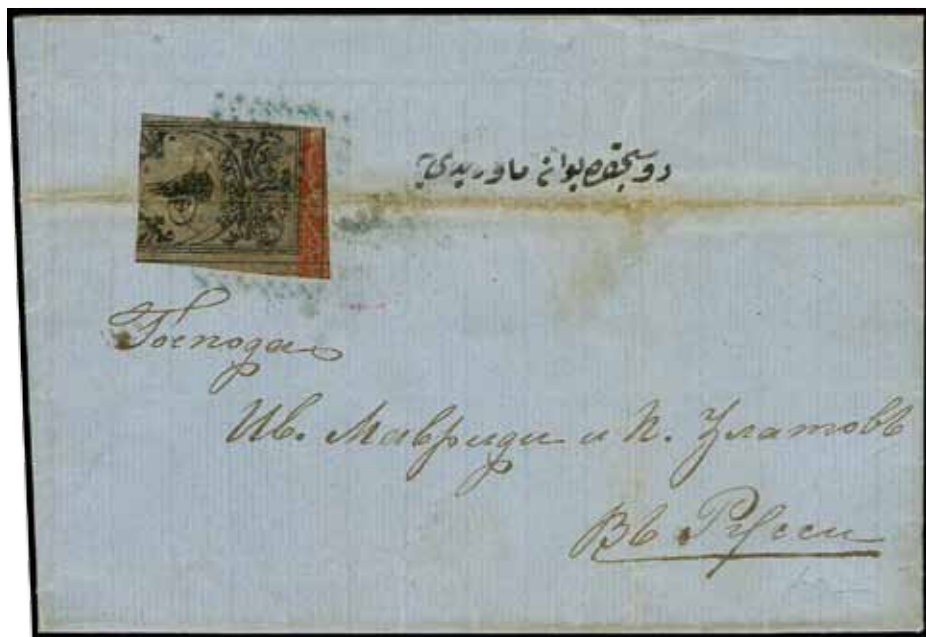 روسجقده يوانى ماوريدى يه
Господа
Ив. Мавриди и П. Златовъ
Въ Русси